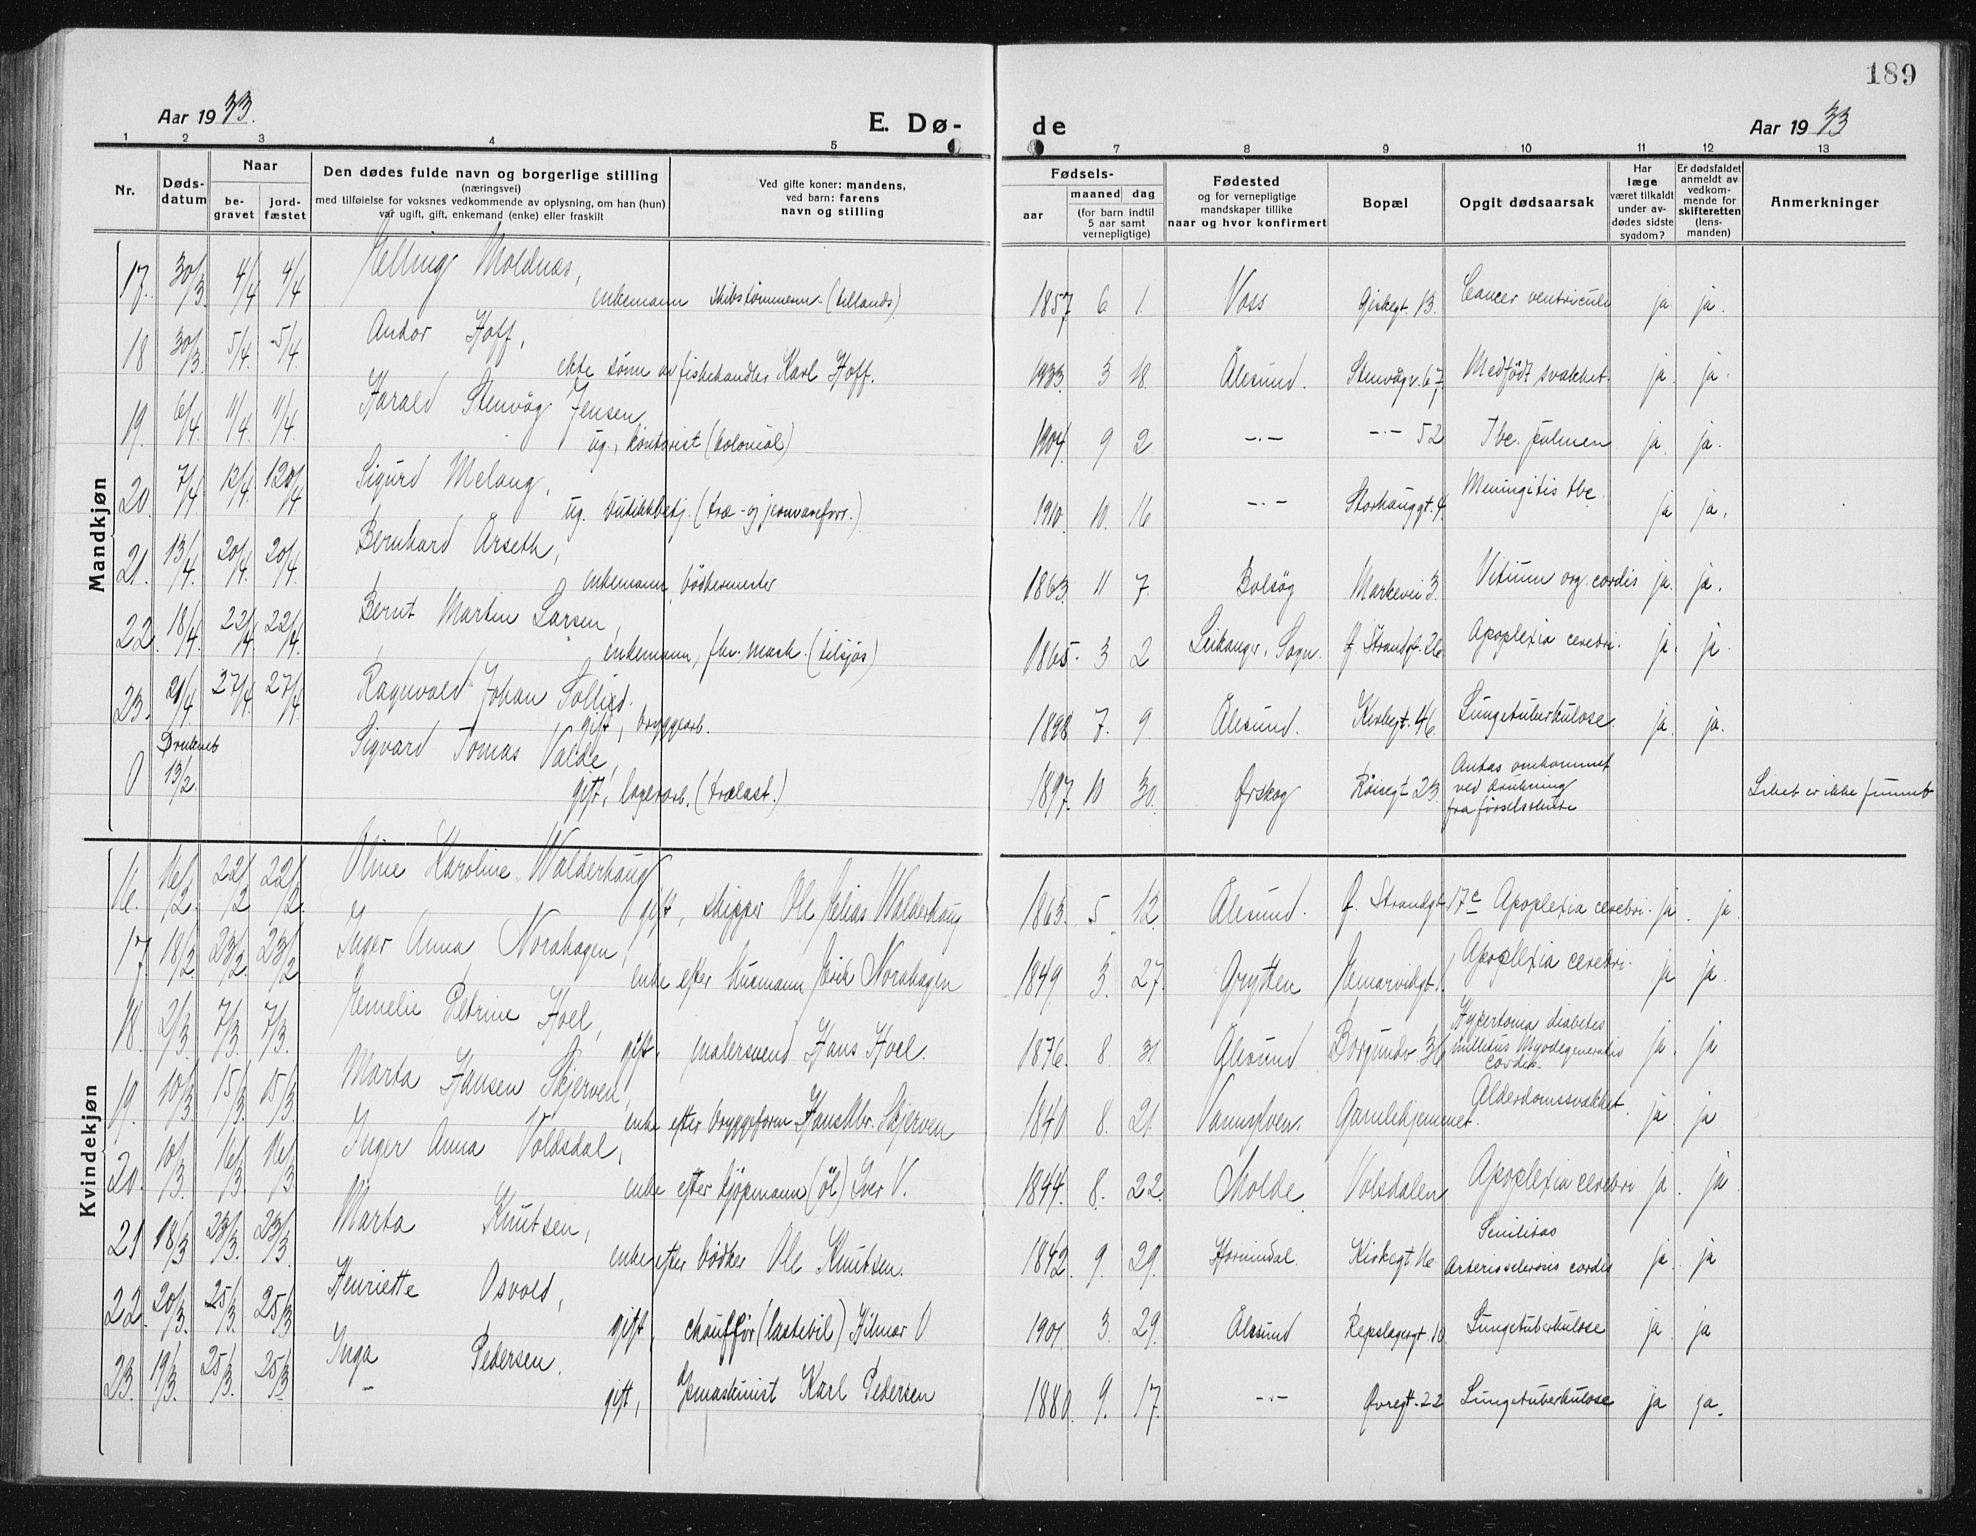 189
Aar 1933.
E. Dø-
de
Aar 1933
1 2 3 4 5 7 8 9 10 11 12 13
Nr.
Døds-
datum
Naar
be-
gravet
jord-
fæstet
Den dødes fulde navn og borgerlige stilling
(næringsvei)
med tilføielse for voksnes vedkommende av oplysning, om han (hun)
var ugift, gift, enkemand (enke) eller fraskilt
Ved gifte koner: mandens,
ved barn: farens
navn og stilling
Fødsels-
aar
maaned
dag
(for barn indtil
5 aar samt
vernepligtige)
Fødested
og for vernepligtige
mandskaper tillike
naar og hvor konfirmert
Bopæl
Opgit dødsaarsak
Har
læge
været tilkaldt
under av-
dødes sidste
sygdom?
Er dødsfaldet
anmeldt av
vedkom-
mende for
skifteretten
(lens-
manden)
Anmerkninger
Mandkjøn
17. 30/3 4/4 4/4 Helling Moldnæs,
enkemann skibstømmerm. (tillands) 1857 6 1. Voss Giskegt. 13. Cancer ventriculi ja ja.
18 30/3 5/4 5/4 Andor Hoff,
ekte sønn av fiskehandler Karl Hoff. 1933. 3 18. Ålesund. Stenvågv. 67. Medfödt svakhet. ja. ja.
19. 6/4 11/4. 11/4. Harald Stenvåg Jensen
ug., kontorist (kolonial) 1904. 9 2 -"- -"- 52 Tbc. pulmon ja. ja.
20. 7/4. 12/4. 12/4 Sigurd Melang,
ug. butikkbetj. (træ- og jernvareforr.) 1910. 10. 16 -"- Storhauggt. 4. Meningitis tbc. ja ja.
21. 13/4. 20/4. 20/4. Bernhard Årseth,
enkemann, bødkermester 1863. 11 7. Bolsøy Markevei 3. Vitium org. cordis ja. ja.
22. 18/4. 22/4. 22/4. Bernt Martin Larsen,
enkemann, fhv. mask. (tilsjøs) 1865. 3 2 Leikanger, Sogn. Ø. Strandgt. 26 Apoplexia cerebri. ja. ja.
23. 21/4 27/4. 27/4. Ragnvald Johan
gift, bryggearb. 1898 7. 9. Ålesund. Kirkegt. 46. Lungetuberkulose. ja. ja.
0 Druknet
13/2. Sigvard Tomas Valde,
gift, lagerarb. (trælast.) 1897. 10 30. Ørskog Röisegt 23. Antas omkommet
ved drukning
fra Liket er ikke funnet
Kvindekjøn
16. 16/2. 22/2 22/2. Oline Karoline Walderhaug
gift, skipper Ole Walderhaug 1863. 5 12. Ålesund. Ø. Strandgt. 17c Apoplexia cerebri. ja. ja.
17 18/2. 23/2. 23/2 Inger Anna Norahagen,
enke efter husmann Norahagen 1849 3. 27. Grytten Apoplexia cerebri. ja ja.
18. 2/3. 7/3. 7/3. Emelie Petrine Hoel,
gift, malersvend Hans Hoel. 1876. 8. 31 Ålesund Borgundv. 36 Hypertonia diabetes
mellitus Myodegeneratio
cordis. ja. ja
19. 10/3. 15/3. 15/3. Marta Hansen Skjerven,
enke efter bryggeform. Hans Skjerven 1840 8. 21. Vannylven. Gamlehjemmet. Alderdomssvakhet. ja. ja
20. 10/3. 16/3. 16/3 Inger Anna Voldsdal,
enke efter kjøpmann (öl) Iver V. 1844. 8. 22. Molde. Volsdalen Apoplexia cerebri ja. ja.
21 18/3 23/3. 23/3. Marta Knutsen,
enke efter bødker Ole Knutsen. 1842. 9. 29. Hornindal. Kirkegt 16 Senilitas
Arteriosclerosis cordis ja. ja
22. 20/3. 25/3. 25/3. Henriette Osvold,
gift, chauffør (lastebil) Hilmar O. 1901. 3. 29. Ålesund Repslagergt. 10 Lungetuberkulose ja. ja
23. 19/3. 25/3. 25/3 Inga Pedersen.
gift, Karl Pedersen 1880. 9. 17. -"- Øvregt. 22 Lungetuberkulose ja ja.